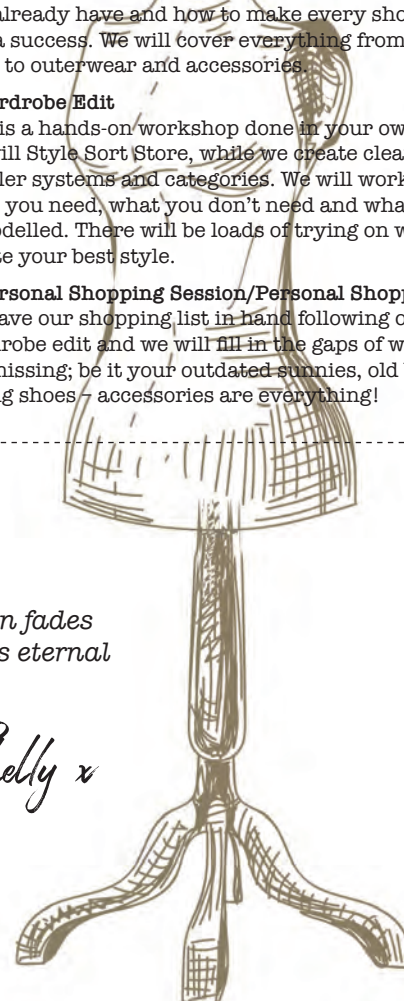 already have and how to make every sho
a success. We will cover everything from
to outerwear and accessories.
rdrobe Edit
is a hands-on workshop done in your ow
ill Style Sort Store, while we create clea
ler systems and categories. We will work
you need, what you don't need and wha
odelled. There will be loads of trying on w
te your best style.
rsonal Shopping Session/Personal Shopp
ave our shopping list in hand following o
drobe edit and we will fill in the gaps of w
missing; be it your outdated sunnies, old
g shoes – accessories are everything!
n fades
s eternal
elly x